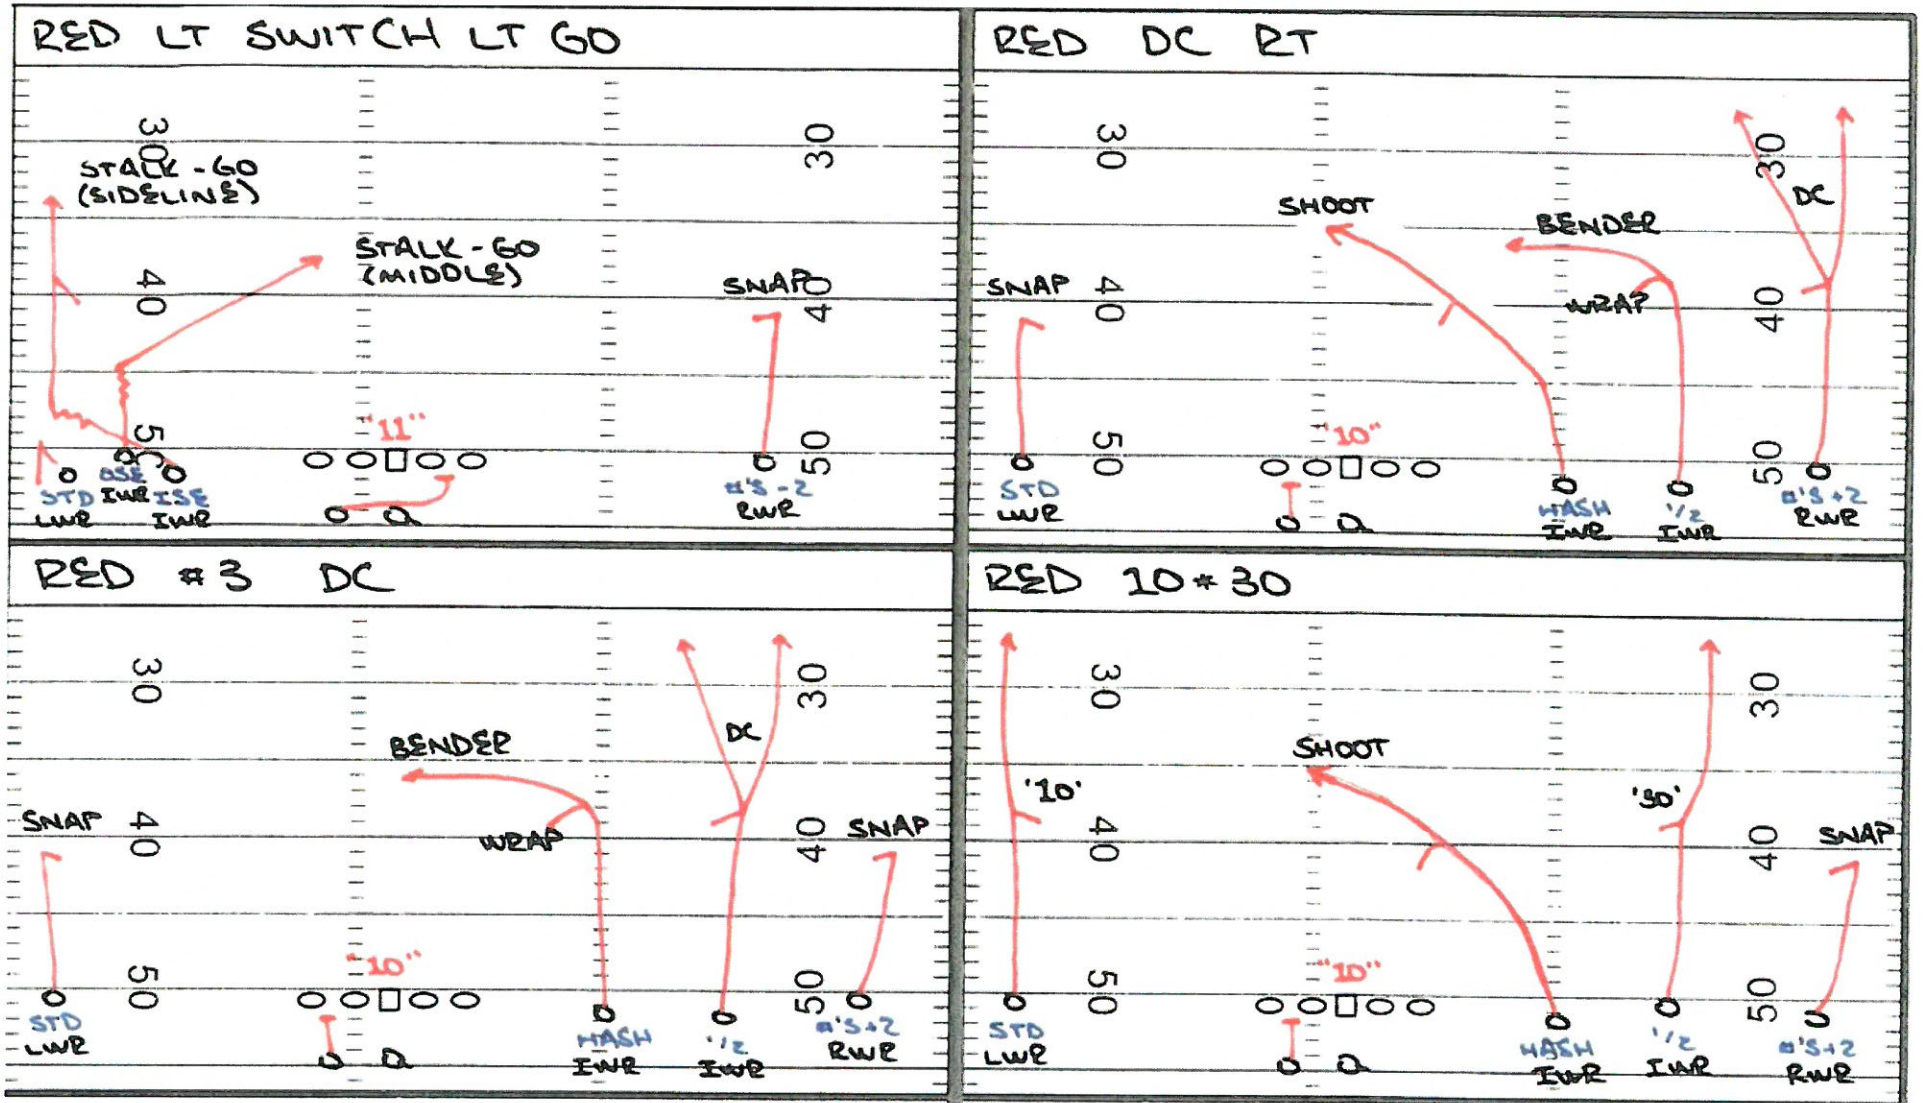 RED LT SWITCH LT GO
30
30
STALK - GO
(SIDELINE)
STALK - GO
(MIDDLE)
40
SNAP
40
"11"
50
50
STD
LWR
OSE
IWR
ISE
IWR
#'S - 2
RWR
RED DC RT
30
30
DC
SHOOT
BENDER
SNAP
40
WRAP
40
"10"
50
50
STD
LWR
HASH
IWR
1/2
IWR
#'S +2
RWR
RED #3 DC
30
30
DC
BENDER
SNAP
40
WRAP
40
SNAP
"10"
50
50
STD
LWR
HASH
IWR
1/2
IWR
#'S +2
RWR
RED 10 * 30
30
30
SHOOT
'10'
'30'
40
40
SNAP
"10"
50
50
STD
LWR
HASH
IWR
1/2
IWR
#'S +2
RWR